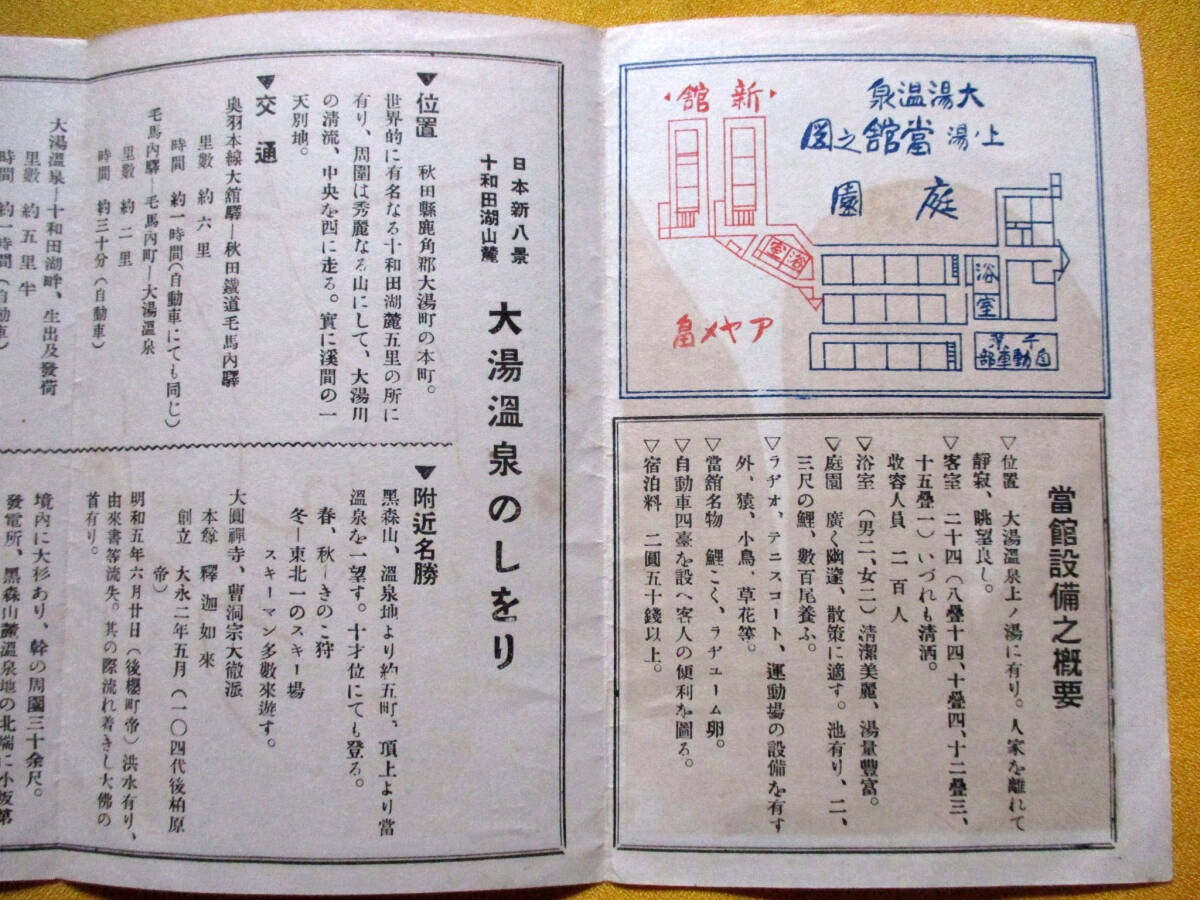 大湯温泉
上ノ湯 當舘之圖
庭園
新舘
浴室
浴室
アヤメ畠
千葉
自動車部
當館設備之概要
▽位置 大湯温泉上ノ湯に有り。人家を離れて
静寂、眺望良し。
▽客室 二十四(八疊十四、十疊四、十二疊三、
十五疊一)いづれも清洒。
收容人員 二百人
▽浴室(男二、女二)清潔美麗、湯量豐富。
▽庭園 廣く幽邃、散策に適す。池有り、二、
三尺の鯉、數百尾養ふ。
▽ラヂオ、テニスコート、運動場の設備を有す
外、猿、小鳥、草花等。
▽當舘名物 鯉こく、ラヂューム卵。
▽自動車四臺を設へ客人の便利を圖る。
▽宿泊料 二圓五十錢以上。
日本新八景
十和田湖山麓
大湯温泉のしをり
▼位置 秋田縣鹿角郡大湯町の本町。
世界的に有名なる十和田湖麓五里の所に
有り、周圍は秀麗なる山にして、大湯川
の清流、中央を西に走る。實に溪間の一
天別地。
▼交通
奥羽本線大舘驛―秋田鐵道毛馬內驛
里數 約六里
時間 約一時間(自動車にても同じ)
毛馬內驛―毛馬內町―大湯温泉
里數 約二里
時間 約三十分(自動車)
大湯温泉―十和田湖畔、生出及發荷
里數 約五里半
時間 約一時間(自動車)
▼附近名勝
黑森山、温泉地より約五町、頂上より當
温泉を一望す。十才位にても登る。
春、秋―きのこ狩
冬―東北一のスキー場
スキーマン多數來遊す。
大圓禪寺、曹洞宗大徹派
本尊 釋迦如來
創立 大永二年五月(一〇四代後柏原
帝)
明和五年六月廿日(後櫻町帝)洪水有り、
由來書等流失。其の際流れ着きし大佛の
首有り。
境內に大杉あり、幹の周圍三十余尺。
發電所、黑森山麓温泉地の北端に小坂第